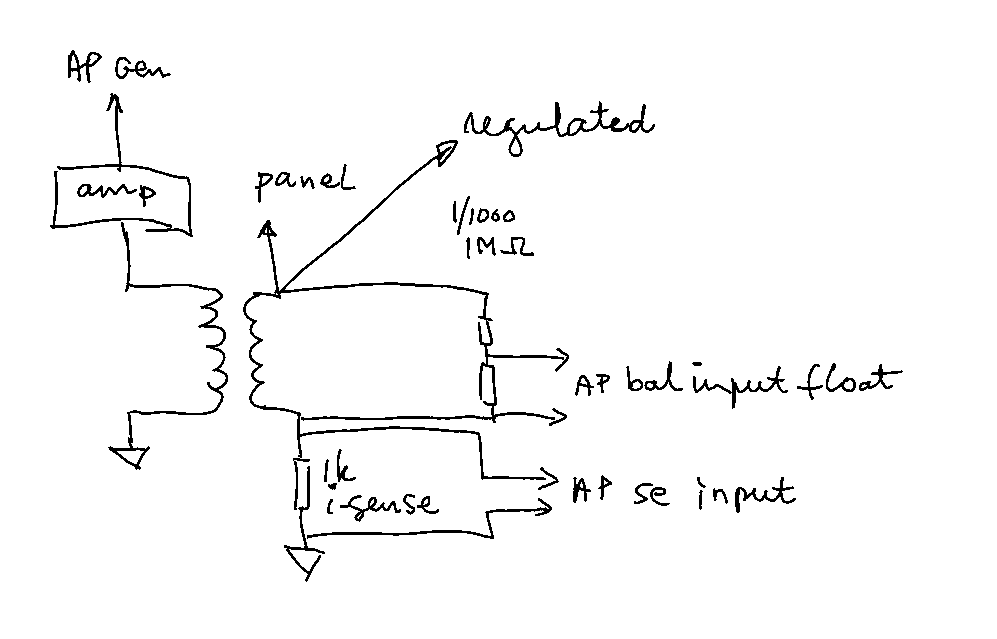 AP Gen
amp
panel
regulated
1/1000
1MΩ
AP bal input float
1k
i-sense
AP se input